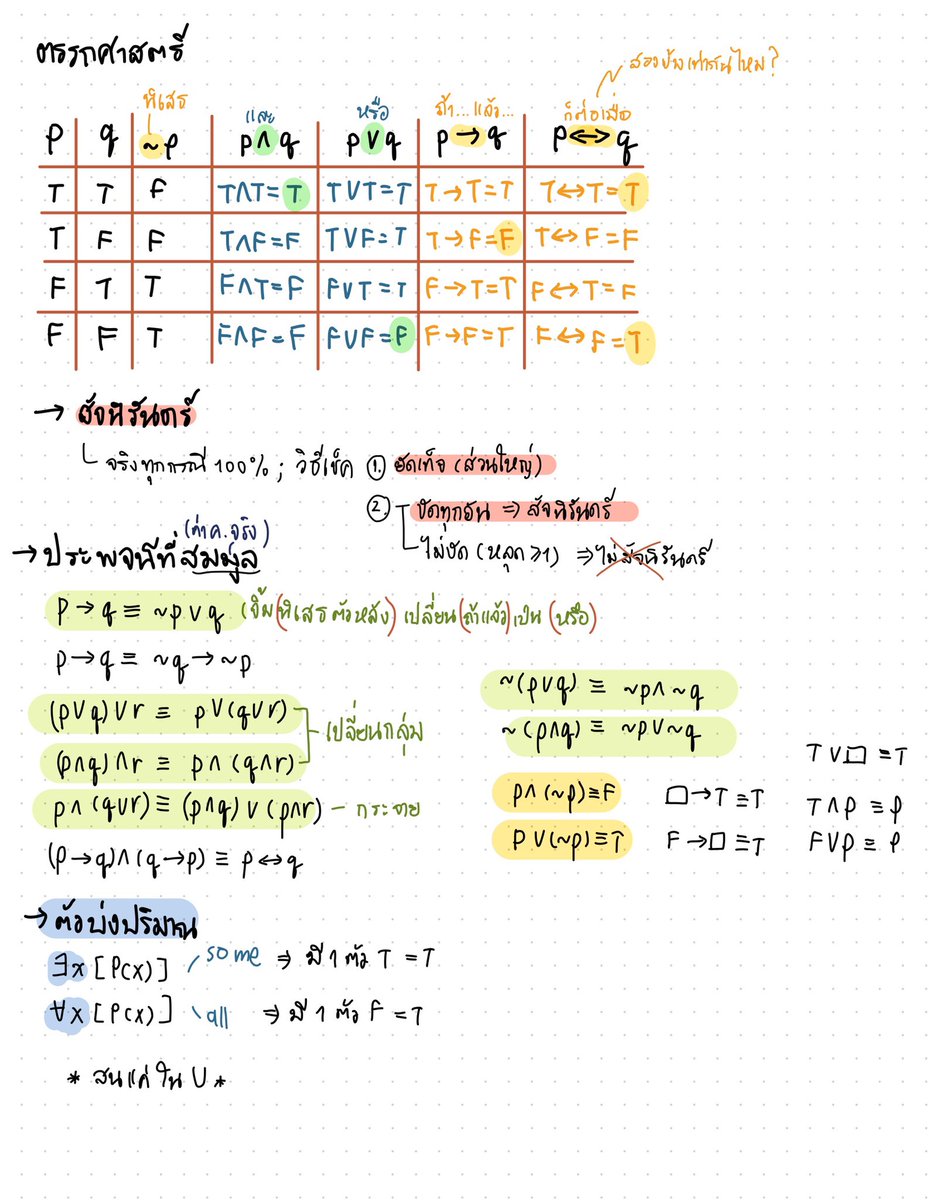 ตรรกศาสตร์
สองข้างเท่ากันไหม?
นิเสธ และ หรือ ถ้า...แล้ว... ก็ต่อเมื่อ
p q ~p p∧q p∨q p→q p↔q
T T F T∧T=T T∨T=T T→T=T T↔T=T
T F F T∧F=F T∨F=T T→F=F T↔F=F
F T T F∧T=F F∨T=T F→T=T F↔T=F
F F T F∧F=F F∨F=F F→F=T F↔F=T
→ สัจนิรันดร์
จริงทุกกรณี 100% ; วิธีเช็ค ① ยัดเท็จ (ส่วนใหญ่)
② ขัดทุกอัน ⇒ สัจนิรันดร์
ไม่ขัด (หลุด ≥1) ⇒ ไม่สัจนิรันดร์
(ค่าค.จริง)
→ ประพจน์ที่สมมูล
p→q ≡ ~p∨q (นิเสธตัวหลัง) เปลี่ยน (ถ้าแล้ว) เป็น (หรือ)
p→q ≡ ~q→~p
(p∨q)∨r ≡ p∨(q∨r)
เปลี่ยนกลุ่ม
(p∧q)∧r ≡ p∧(q∧r)
p∧(q∪r) ≡ (p∧q)∨(p∧r) – กระจาย
(p→q)∧(q→p) ≡ p↔q
~(p∨q) ≡ ~p∧~q
~(p∧q) ≡ ~p∨~q
p∧(~p)≡F □→T≡T
p∨(~p)≡T F→□≡T
T∨□≡T
T∧p≡p
F∨p≡p
→ ตัวบ่งปริมาณ
∃x [P(x)] some ⇒ มี 1 ตัว T = T
∀x [P(x)] all ⇒ มี 1 ตัว F = T
* สนแค่ใน U *